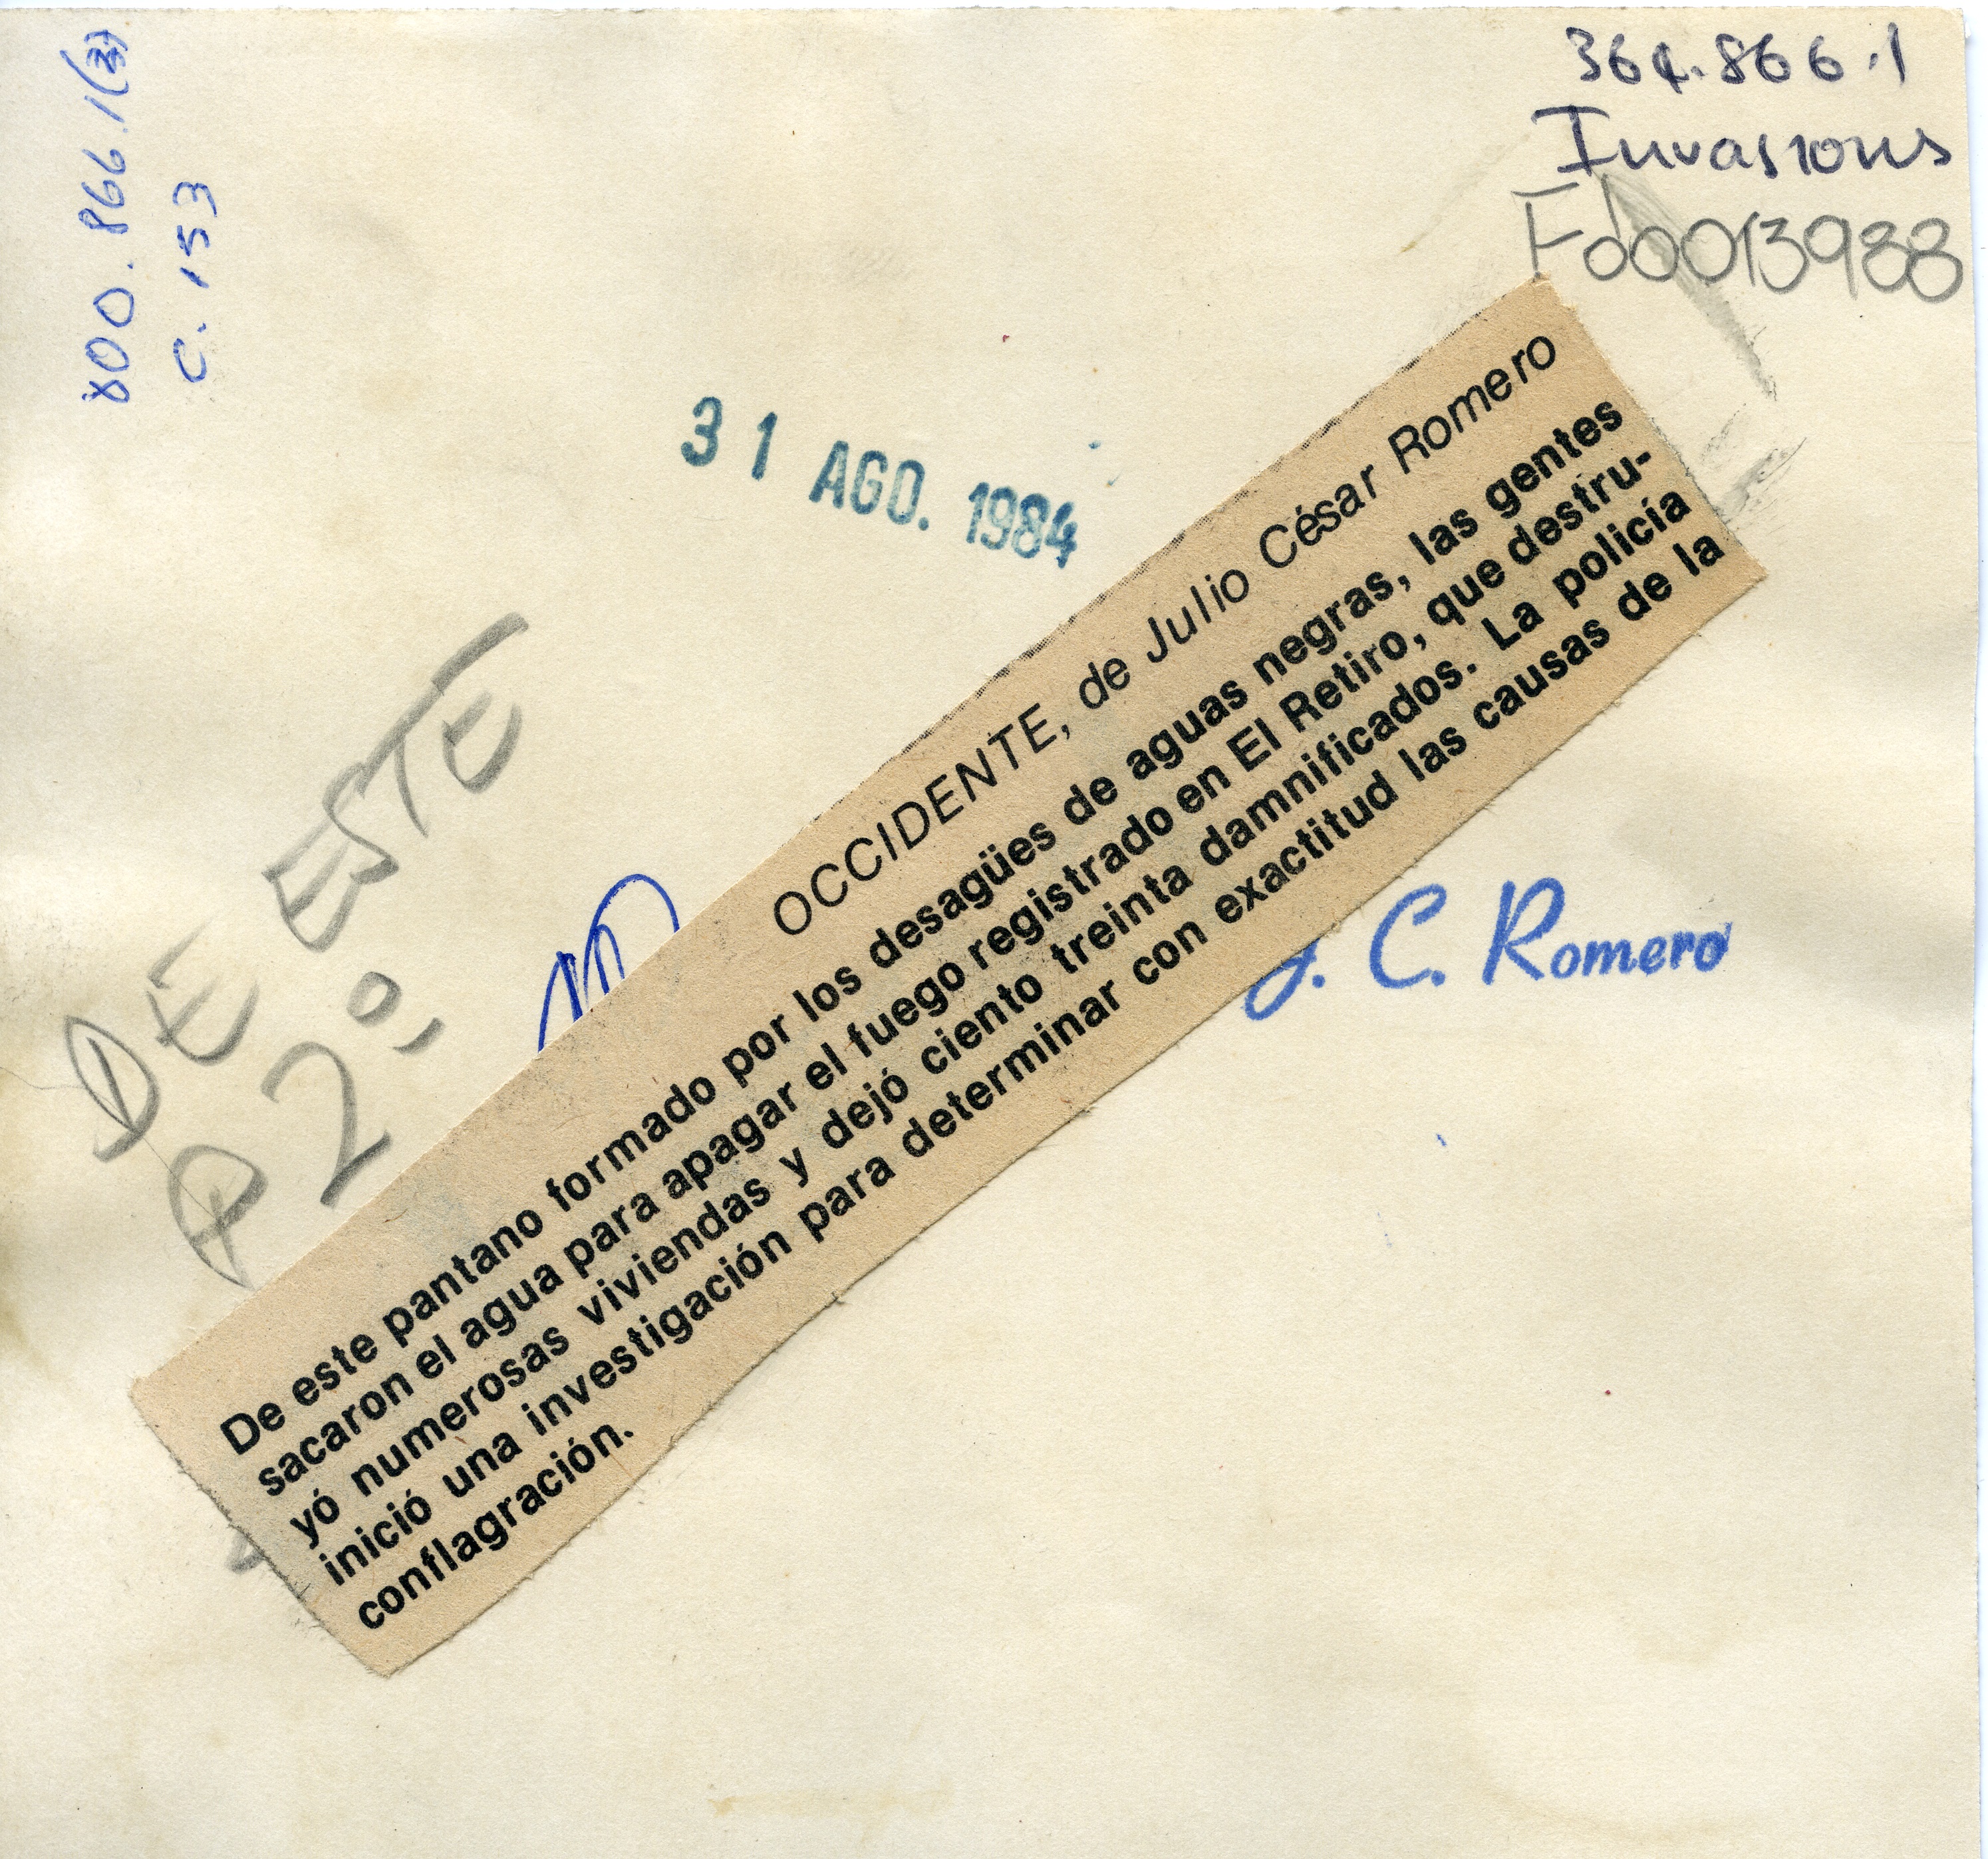 800.866.1(3)
C.153
364.866.1
Invasions
Fd0013988
31 AGO. 1984
DE ESTE
P 2º,
OCCIDENTE, de Julio César Romero
De este pantano formado por los desagües de aguas negras, las gentes
sacaron el agua para apagar el fuego registrado en El Retiro, que destru-
yó numerosas viviendas y dejó ciento treinta damnificados. La policía
inició una investigación para determinar con exactitud las causas de la
conflagración.
J. C. Romero